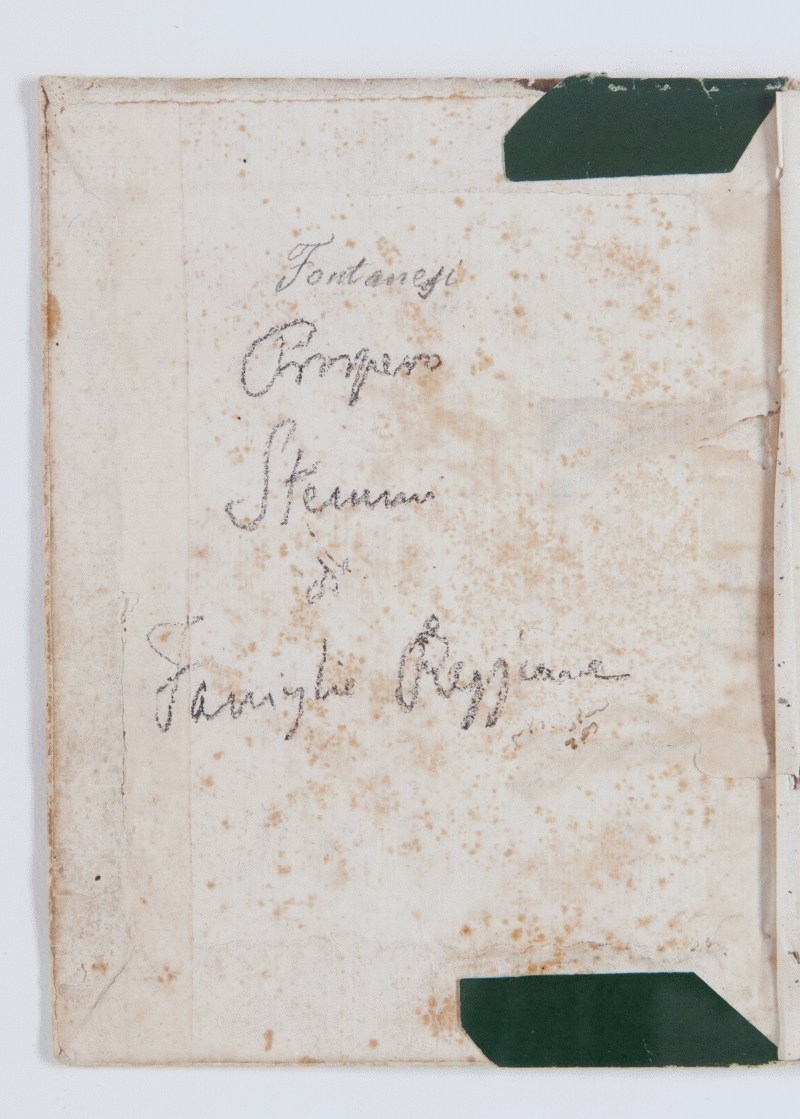 Fontanesi
Prospero
Stemmi
di
Famiglie Reggiane